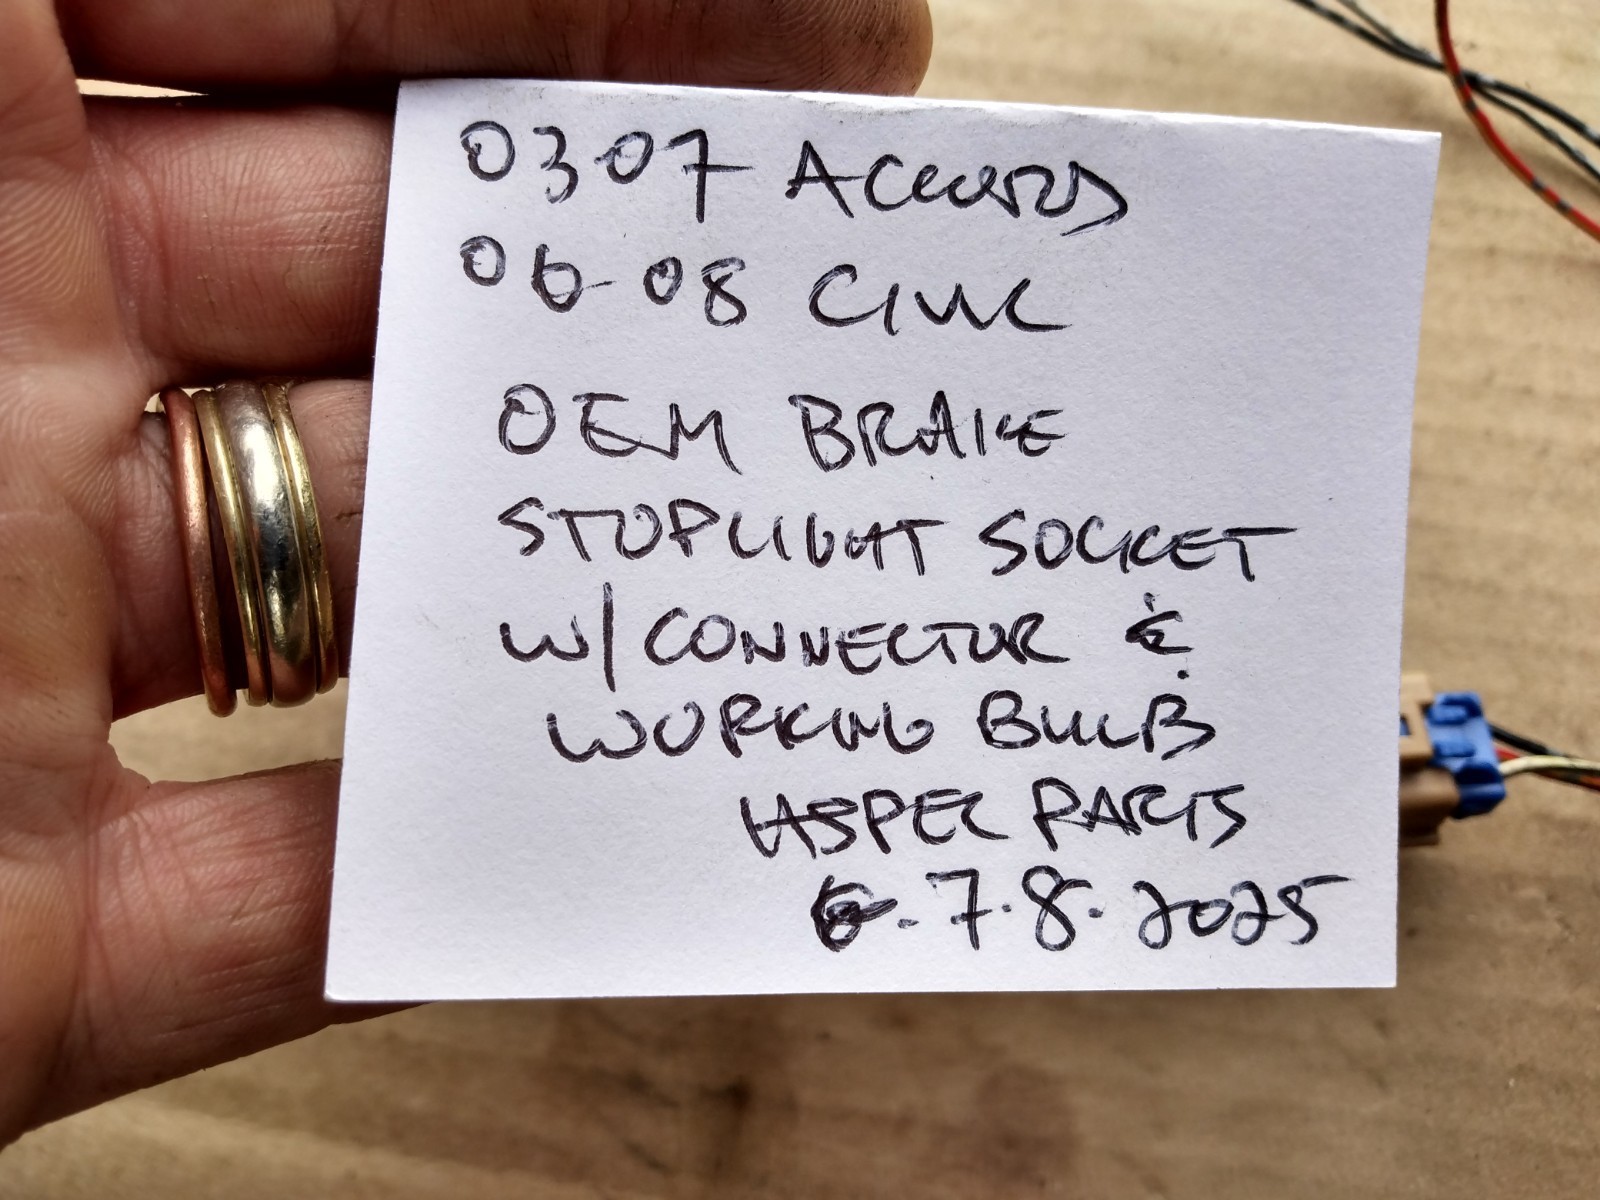 03-07 ACCORD
06-08 CIVIC
OEM BRAKE
STOPLIGHT SOCKET
W/CONNECTOR &
WORKING BULB
PARTS
7.8.2025